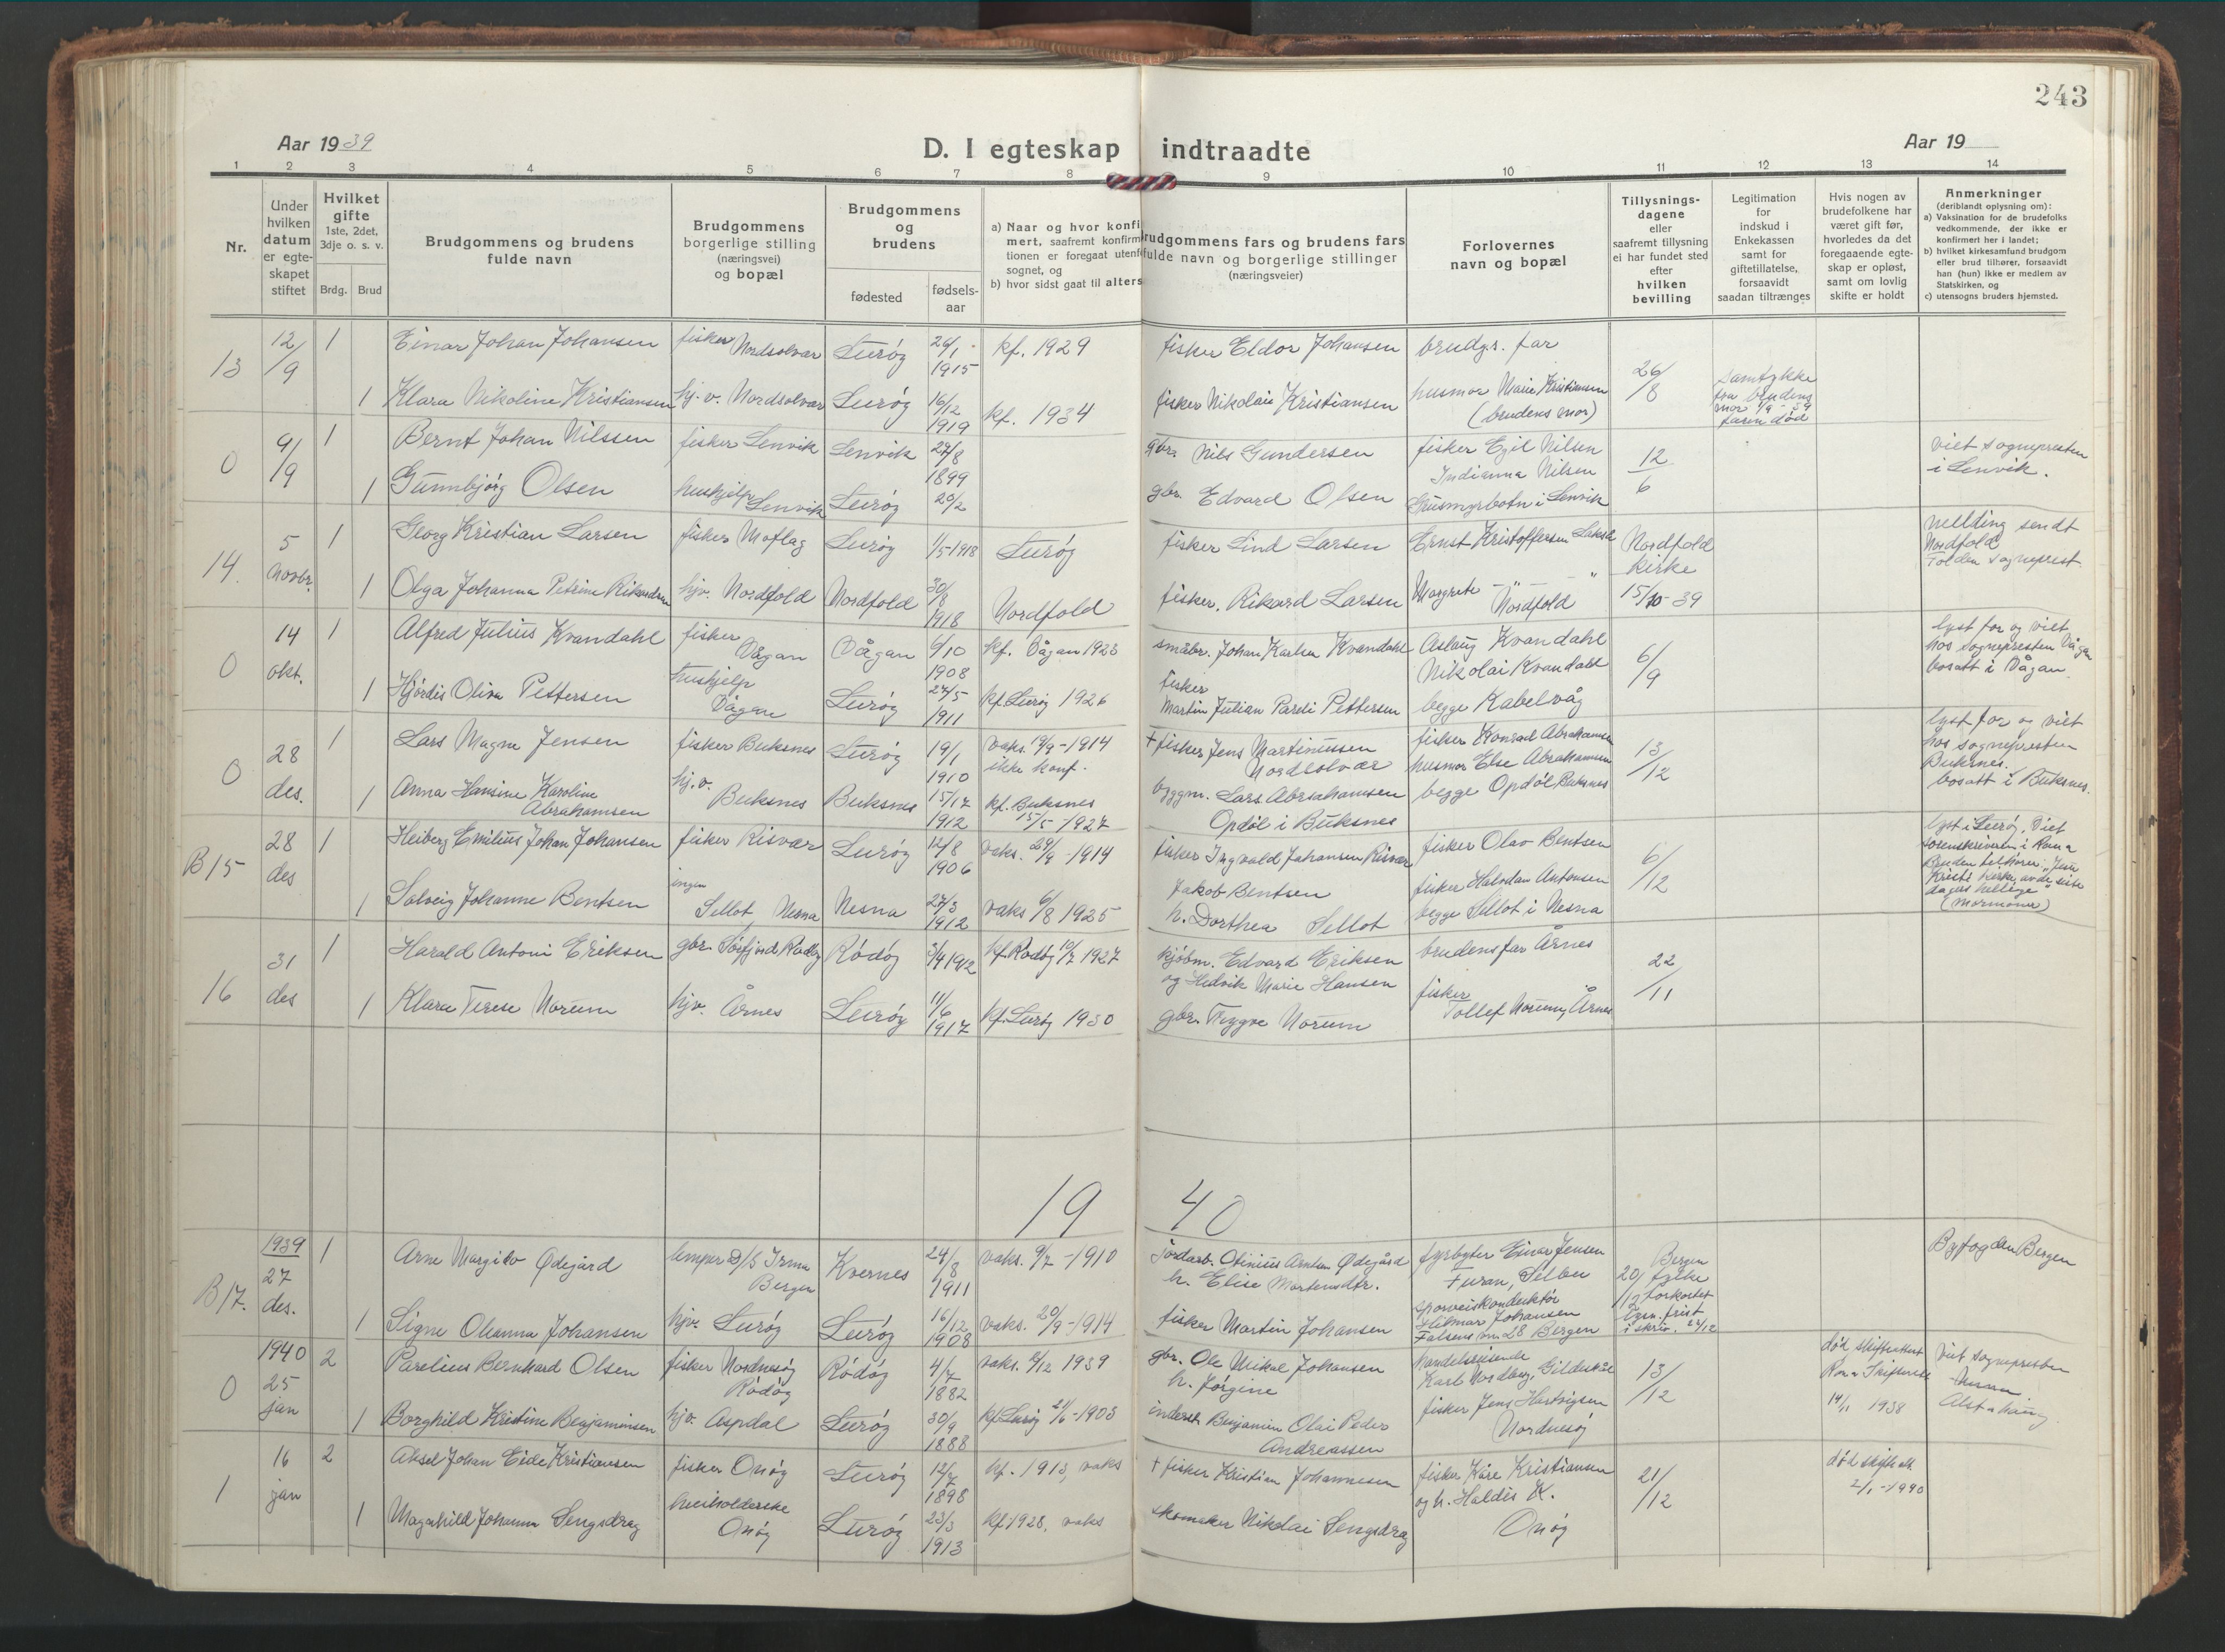 243
Aar 1939
D. I egteskap indtraadte
Aar 19
1 2 3 4 5 6 7 8 9 10 11 12 13 14
Nr.
Under hvilken datum er egteskapet stiftet
Hvilket gifte 1ste, 2det, 3dje o. s. v.
Brdg. Brud
Brudgommens og brudens fulde navn
Brudgommens borgerlige stilling (næringsvei) og bopæl
Brudgommens og brudens
fødested
fødsels-aar
a) Naar og hvor konfi
mert, saafremt konfirm
tionen er foregaat utenf
sognet, og
b) hvor sidst gaat til alters
rudgommens fars og brudens fars
fulde navn og borgerlige stillinger
(næringsveier)
Forlovernes navn og bopæl
Tillysnings-dagene eller saafremt tillysning ei har fundet sted efter hvilken bevilling
Legitimation for indskud i Enkekassen samt for giftetillatelse, forsaavidt saadan tiltrænges
Hvis nogen av brudefolkene har været gift før, hvorledes da det foregaaende egte-skap er opløst, samt om lovlig skifte er holdt
Anmerkninger
(deriblandt oplysning om):
a) Vaksination for de brudefolks vedkommende, der ikke er konfirmert her i landet;
b) hvilket kirkesamfund brudgom eller brud tilhører, forsaavidt han (hun) ikke er medlem av Statskirken, og
c) utensogns bruders hjemsted.
13 12/9 1 Einar Johan Johansen fisker Nordsolvær Lurøy 26/1 1915 kf. 1929 fisker Eldor Johansen brudgs. far
1 Klara Nikoline Kristiansen hj. v. Nordsolvær Lurøy 16/12 1919 kf. 1934 fisker Nikolai Kristiansen husmor Marie Kristiansen (brudens mor) 26/8 samtykke fra brudens mor 1/9-39 faren død
0 9/9 1 Bernt Johan Nilssen fisker Lenvik Lenvik 27/8 1899 gbr. Nils Gundersen fisker Egil Nilsen Indianna Nilsen 12/6 viet sognepresten i Lenvik.
1 Gunnbjørg Olsen hushjelp Lenvik Lurøy 20/2 gbr. Edvard Olsen Grusmyrbotn i Lenvik
14 5 Novbr. 1 Georg Kristian Larsen fisker Moflag Lurøy 1/5-1918 Lurøy fisker Lind Larsen Ernst Kristoffersen Nordfold kirke 15/10-39 melding sendt Nordfold Folden sogneprest.
1 Olga Johanna Petrine Rikardsen hjv. Nordfold Nordfold 30/8 1918 Nordfold fisker. Rikard Larsen Margrete - " - " Nordfold
0 14 okt. 1 Alfred Julius Kvandahl fisker Vågan Vågan 6/10 1908 kf. Vågan 1923 småbr. Johan Karlsen Kvandahl Aslaug Kvandahl Nikolai Kvandahl 6/9 lyst for og viet hos sognepresten Vågan bosatt i Vågan.
1 Hjørdis Oliva Pettersen hushjelp Vågan Lurøy 27/5 1911 kf. Lurøy 1926 fisker Martin Julian Pareli Pettersen begge Kabelvåg
0 28 des. 1 Lars Magne Jensen fisker Buksnes Lurøy 19/1 1910 vaks. 19/9-1914 ikke konf. + fisker Jens Martinussen Nordsolvær fisker Konrad Abrahamsen husmor Else Abrahamsen 13/12 lyst for og viet hos sognepresten Buksnes. bosatt i Buksnes.
1 Anna Hansine Karoline Abrahamsen hj. v. Buksnes Buksnes 15/12 1912 kf. Buksnes 15/5-1927 byggm. Lars Abrahamsen Opdøl i Buksnes begge Opdøl Buksnes
B 15 28 des 1 Heiberg Emilius Johan Johansen fisker Risvær Lurøy 12/8 1906 vaks. 29/9-1914 fisker Ingvald Johansen Risvær fisker Olav Bentsen 6/12 lyst i Lurøy. Viet sorenskriveren i Rana Bruden tilhører "Jesu Kristi kirke av de siste dagers hellige" (mormoner)
1 Solveig Johanne Bentsen ingen Sellot Nesna Nesna 27/3 1912 vaks 6/8 1925 Jakob Bentsen h. Dorthea Sellot fisker Halvdan Antonsen begge Sellot i Nesna
16 31 des 1 Harald Antoni Eriksen gbr. Sørfjord Rødøy Rødøy 3/4 1912 kf. Rødøy 10/7 1927 kjøbm. Edvard Eriksen og Hedvik Marie Hansen brudens far Årnes 22/11
1 Klara Terese Norum hjv. Årnes Lurøy 11/6 1917 kf. Lurøy 1930 gbr. Trygve Norum fisker Tollef Norum, Årnes
19 40
B 17. 1939 27 des. 1 Arne Margido Ødegård lemper D/S Irma Bergen Kvernes 24/8 1911 vaks. 9/7-1910 jordarb. Otinius Arntsen Ødegård h. Elise Martensdtr. fyrbøter Einar Jensen Furan, Selbu Bergen 20/12 fylke forkortet lysn. frist i skriv. 22/12 Byfogden Bergen
1 Signe Oleanna Johansen hjv. Lurøy Lurøy 16/12 1908 vaks. 20/9-1914 fisker Martin Johansen sporveiskonduktør Hilmar Johansen Falsens vn. 28 Bergen
0 1940 25 jan 2 Parelius Bernhard Olsen fisker Nordnesøy Rødøy Rødøy 4/7 1882 vaks. 8/12 1939 gbr. Ole Mikal Johansen h. Jørgine handelsreisende Karl Nordberg, Gildeskål 13/12 død skifteattest 14/11 1938 viet sognepresten Alstahaug
1 Borghild Kristine Benjaminsen hjv. Aspdal Lurøy 30/9 1888 kf. Lurøy 21/6-1903 inderst Benjamin Olai Peder Andreassen fisker Jens Hartvigsen Nordnesøy
1 16 jan 2 Aksel Johan Eide Kristiansen fisker Onøy Lurøy 12/7 1898 kf. 1913, vaks + fisker Kristian Johannesen fisker Kåre Kristiansen og h. Haldis K. 21/12 død skifteatt. 2/1-1940
1 Magnhild Johanna Sengsdrag husholderske Onøy Lurøy 23/3 1913 kf. 1928, vaks skomaker Nikolai Sengsdrag Onøy